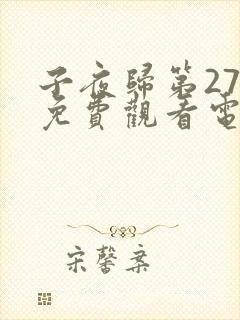 子夜歸第27
免費觀看電
宋馨案